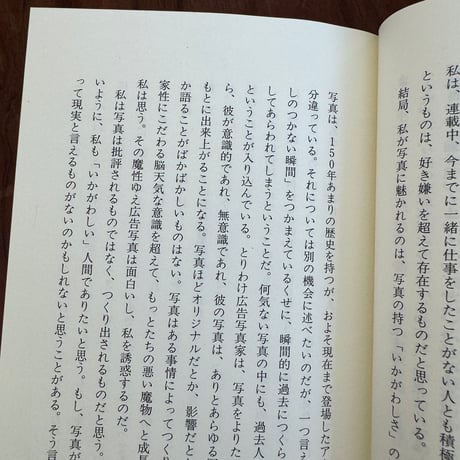 私は、連載中、今までに一緒に仕事をしたことがない人とも積極
というものは、好き嫌いを超えて存在するものだと思っている。
結局、私が写真に魅かれるのは、写真の持つ「いかがわしさ」の
写真は、150年あまりの歴史を持つが、およそ現在まで登場したア
分違っている。それについては別の機会に述べたいのだが、一つ言え
しのつかない瞬間」をつかまえているくせに、瞬間的に過去につくら
してあらわれてしまうということだ。何気ない写真の中にも、過去人
ということが入り込んでいる。とりわけ広告写真家は、写真をよりた
ら、彼が意識的であれ、無意識であれ、彼の写真は、ありとあらゆる
もとに出来上がることになる。写真ほどオリジナルだとか、影響だと
か語ることがばかばかしいものはない。写真はある事情によってつくり
家性にこだわる脳天気な意識を超えて、もっとたちの悪い魔物へと成長
私は思う。その魔性ゆえ広告写真は面白いし、私を誘惑するのだ。
私は写真は批評されるものではなく、つくり出されるものだと思う。
いように、私も「いかがわしい」人間でありたいと思う。もし、写真が
って現実と言えるものがないのかもしれないと思うことがある。そう言